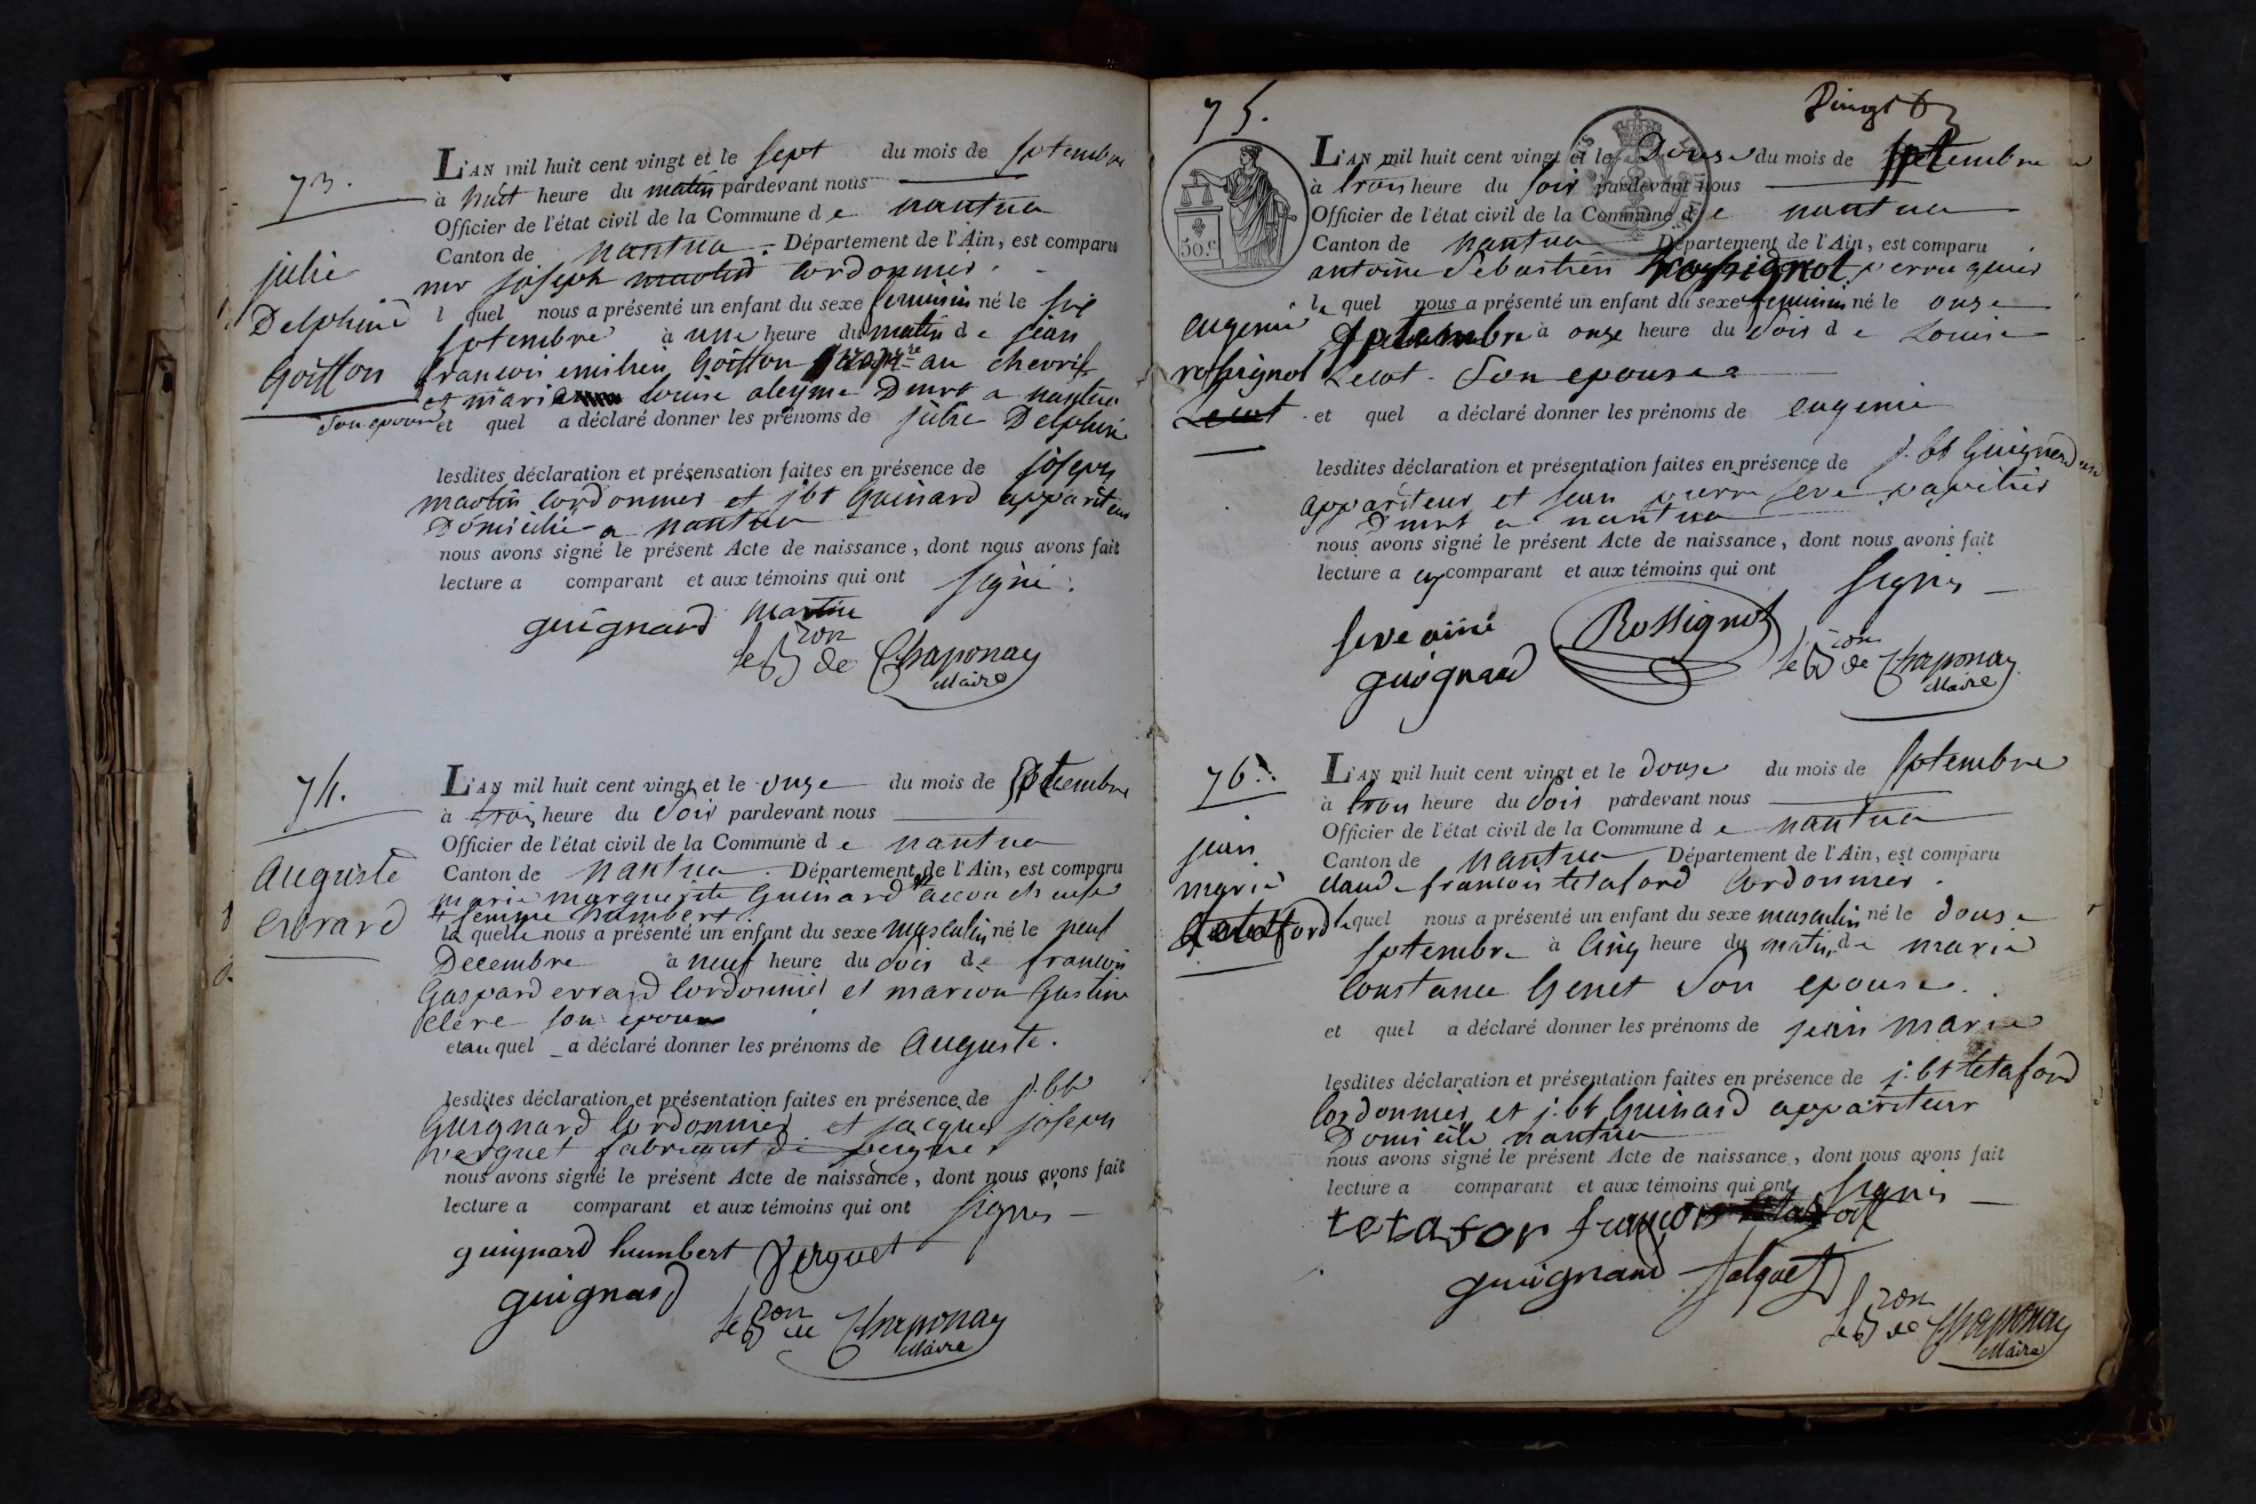 73.
julie
Delphine
Goiffon
L'AN mil huit cent vingt et le sept du mois de septembre
à huit heure du matin pardevant nous
Officier de l'état civil de la Commune d e nantua
Canton de nantua Département de l'Ain, est comparu
mr joseph martin cordonnier
l quel nous a présenté un enfant du sexe feminin né le six
septembre à une heure du matin d e jean
francois emilien Goiffon au chevril
et marie louise aleyme Dmrt a nantua
son epouse et quel a déclaré donner les prénoms de julie Delphine
lesdites déclaration et présensation faites en présence de joseph
martin cordonnier et j bt Guinard appariteur
Domicilié a nantua
nous avons signé le présent Acte de naissance, dont nous avons fait
lecture a comparant et aux témoins qui ont signé.
guignard martin
le Bon de Chaponay
Maire
74.
Auguste
Errard
L'AN mil huit cent vingt et le onze du mois de septembre
à trois heure du soir pardevant nous
Officier de l'état civil de la Commune d e nantua
Canton de nantua Département de l'Ain, est comparu
marie marguerite Guinard accoucheuse
femme humbert
la quelle nous a présenté un enfant du sexe masculin né le neuf
Decembre à neuf heure du soir de francois
Gaspard errard cordonnier et marion Gustine
clere son epouse
et au quel a déclaré donner les prénoms de Auguste.
lesdites déclaration et présentation faites en présence de j. bt
Guignard cordonnier et jacques joseph
verguet fabricant de peigne
nous avons signé le présent Acte de naissance, dont nous avons fait
lecture a comparant et aux témoins qui ont signés
guignard humbert Verguet
guignard
le Bon de Chaponay
Maire
75.
50.c
eugenie
rossignol
Lecot
L'AN mil huit cent vingt et le Douse du mois de septembre
à trois heure du soir pardevant nous
Officier de l'état civil de la Commune d e nantua
Canton de nantua Département de l'Ain, est comparu
antoine Sebastien Rossignol perruquier
le quel nous a présenté un enfant du sexe feminin né le onze
septembre à onze heure du soir d e Louise
Lecot son epouse
et quel a déclaré donner les prénoms de eugenie
lesdites déclaration et présentation faites en présence de j. bt Guignard
appariteur et jean pierre seve
Dmrt a nantua
nous avons signé le présent Acte de naissance, dont nous avons fait
lecture a comparant et aux témoins qui ont signés
seve ainé Rossignol
guignard
le Bon de Chaponay
Maire
76.
jean
marie
tetaford
L'AN mil huit cent vingt et le douse du mois de septembre
à trois heure du soir pardevant nous
Officier de l'état civil de la Commune d e nantua
Canton de nantua Département de l'Ain, est comparu
claude francois tetaford cordonnier.
le quel nous a présenté un enfant du sexe masculin né le douse
septembre à cinq heure du matin, de marie
Constance Genet son epouse.
et quel a déclaré donner les prénoms de jean marie
lesdites déclaration et présentation faites en présence de j. bt tetaford
cordonnier et j. bt Guinard appariteur
Domicile nantua
nous avons signé le présent Acte de naissance, dont nous avons fait
lecture a comparant et aux témoins qui ont signés
tetafor francois
guignard
le Bon de Chaponay
Maire